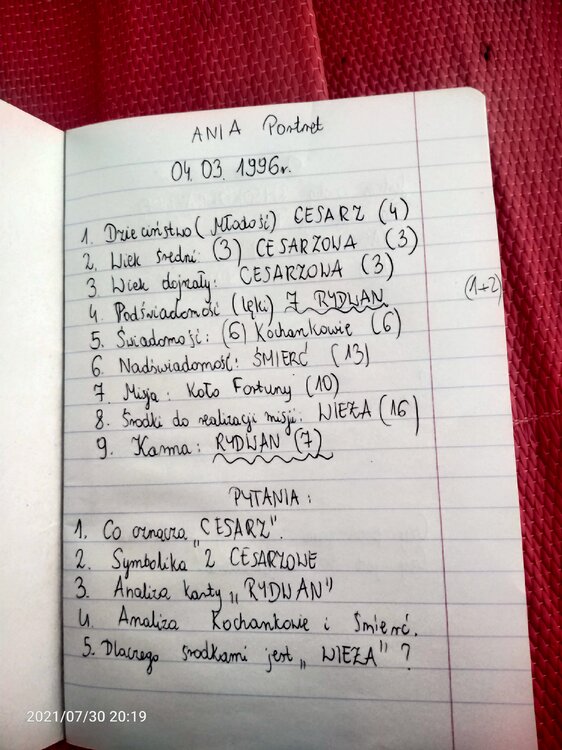 ANIA Portret
04.03.1996r.
1. Dzieciństwo (Młodość) CESARZ (4)
2. Wiek średni: (3) CESARZOWA (3)
3 Wiek dojrzały: CESARZOWA (3)
(1+2)
4. Podświadomość (lęki) 7 RYDWAN
5. Świadomość: (6) Kochankowie (6)
6. Nadświadomość: ŚMIERĆ (13)
7. Misja: Koło Fortuny (10)
8. Środki do realizacji misji: WIEŻA (16)
9. Karma: RYDWAN (7)
PYTANIA:
1. Co oznacza „CESARZ".
2. Symbolika 2 CESARZOWE
3. Analiza karty „RYDWAN"
4. Analiza Kochankowie i Śmierć.
5. Dlaczego środkami jest „WIEŻA"?
2021/07/30 20:19